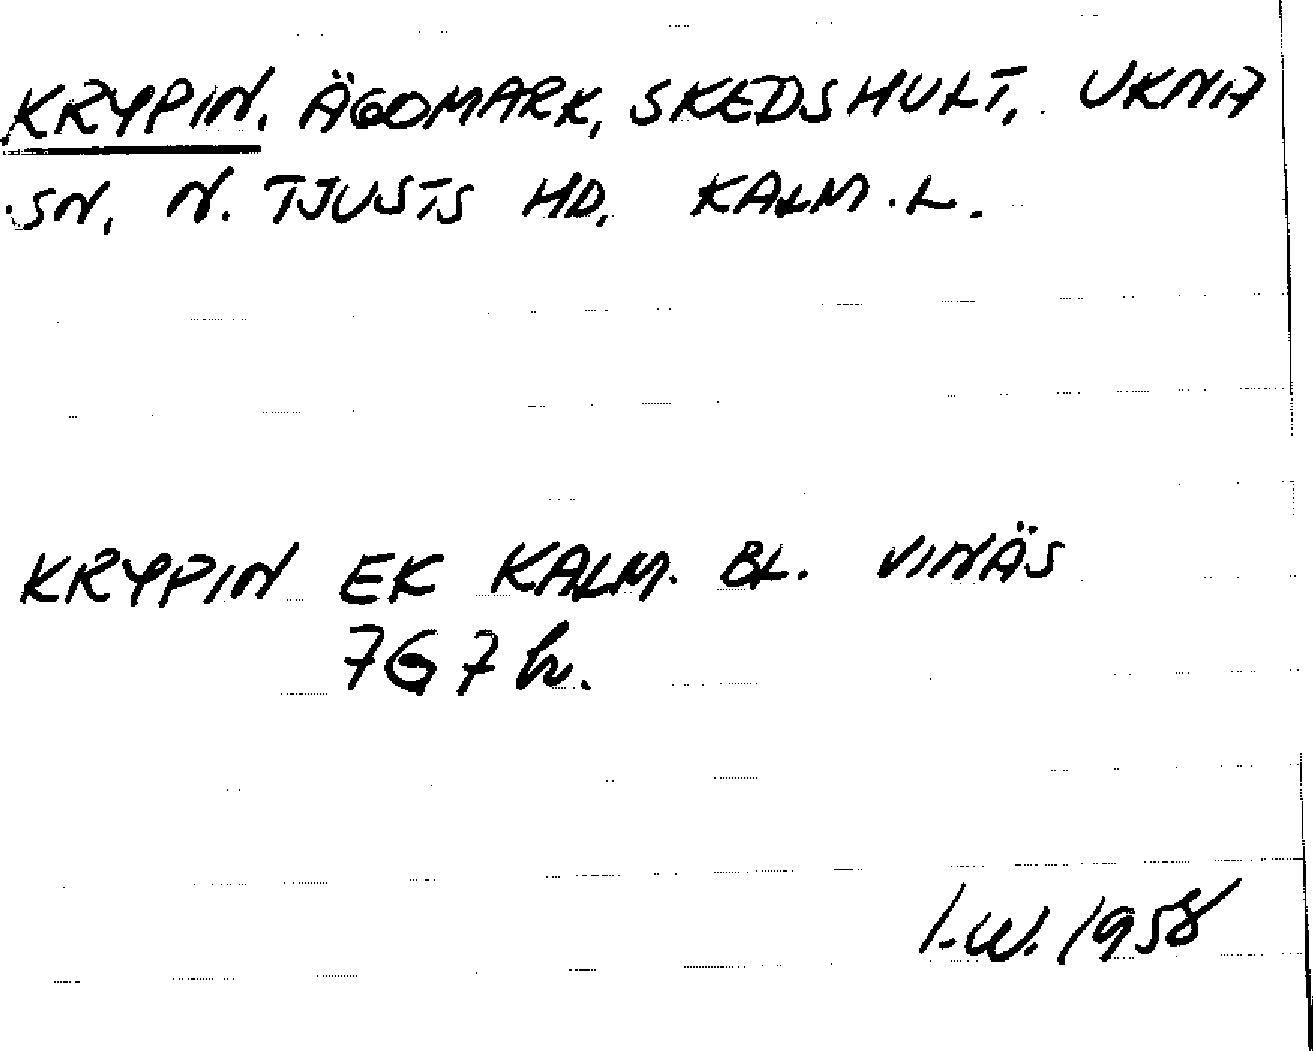 KRYPIN. ÄGOMARK, SKEDSHULT, UKNA
SN, N. TJUSTS HD, KALM. L.
KRYPIN EK KALM. BL. VINÄS
7G7 br.
I.W. 1958